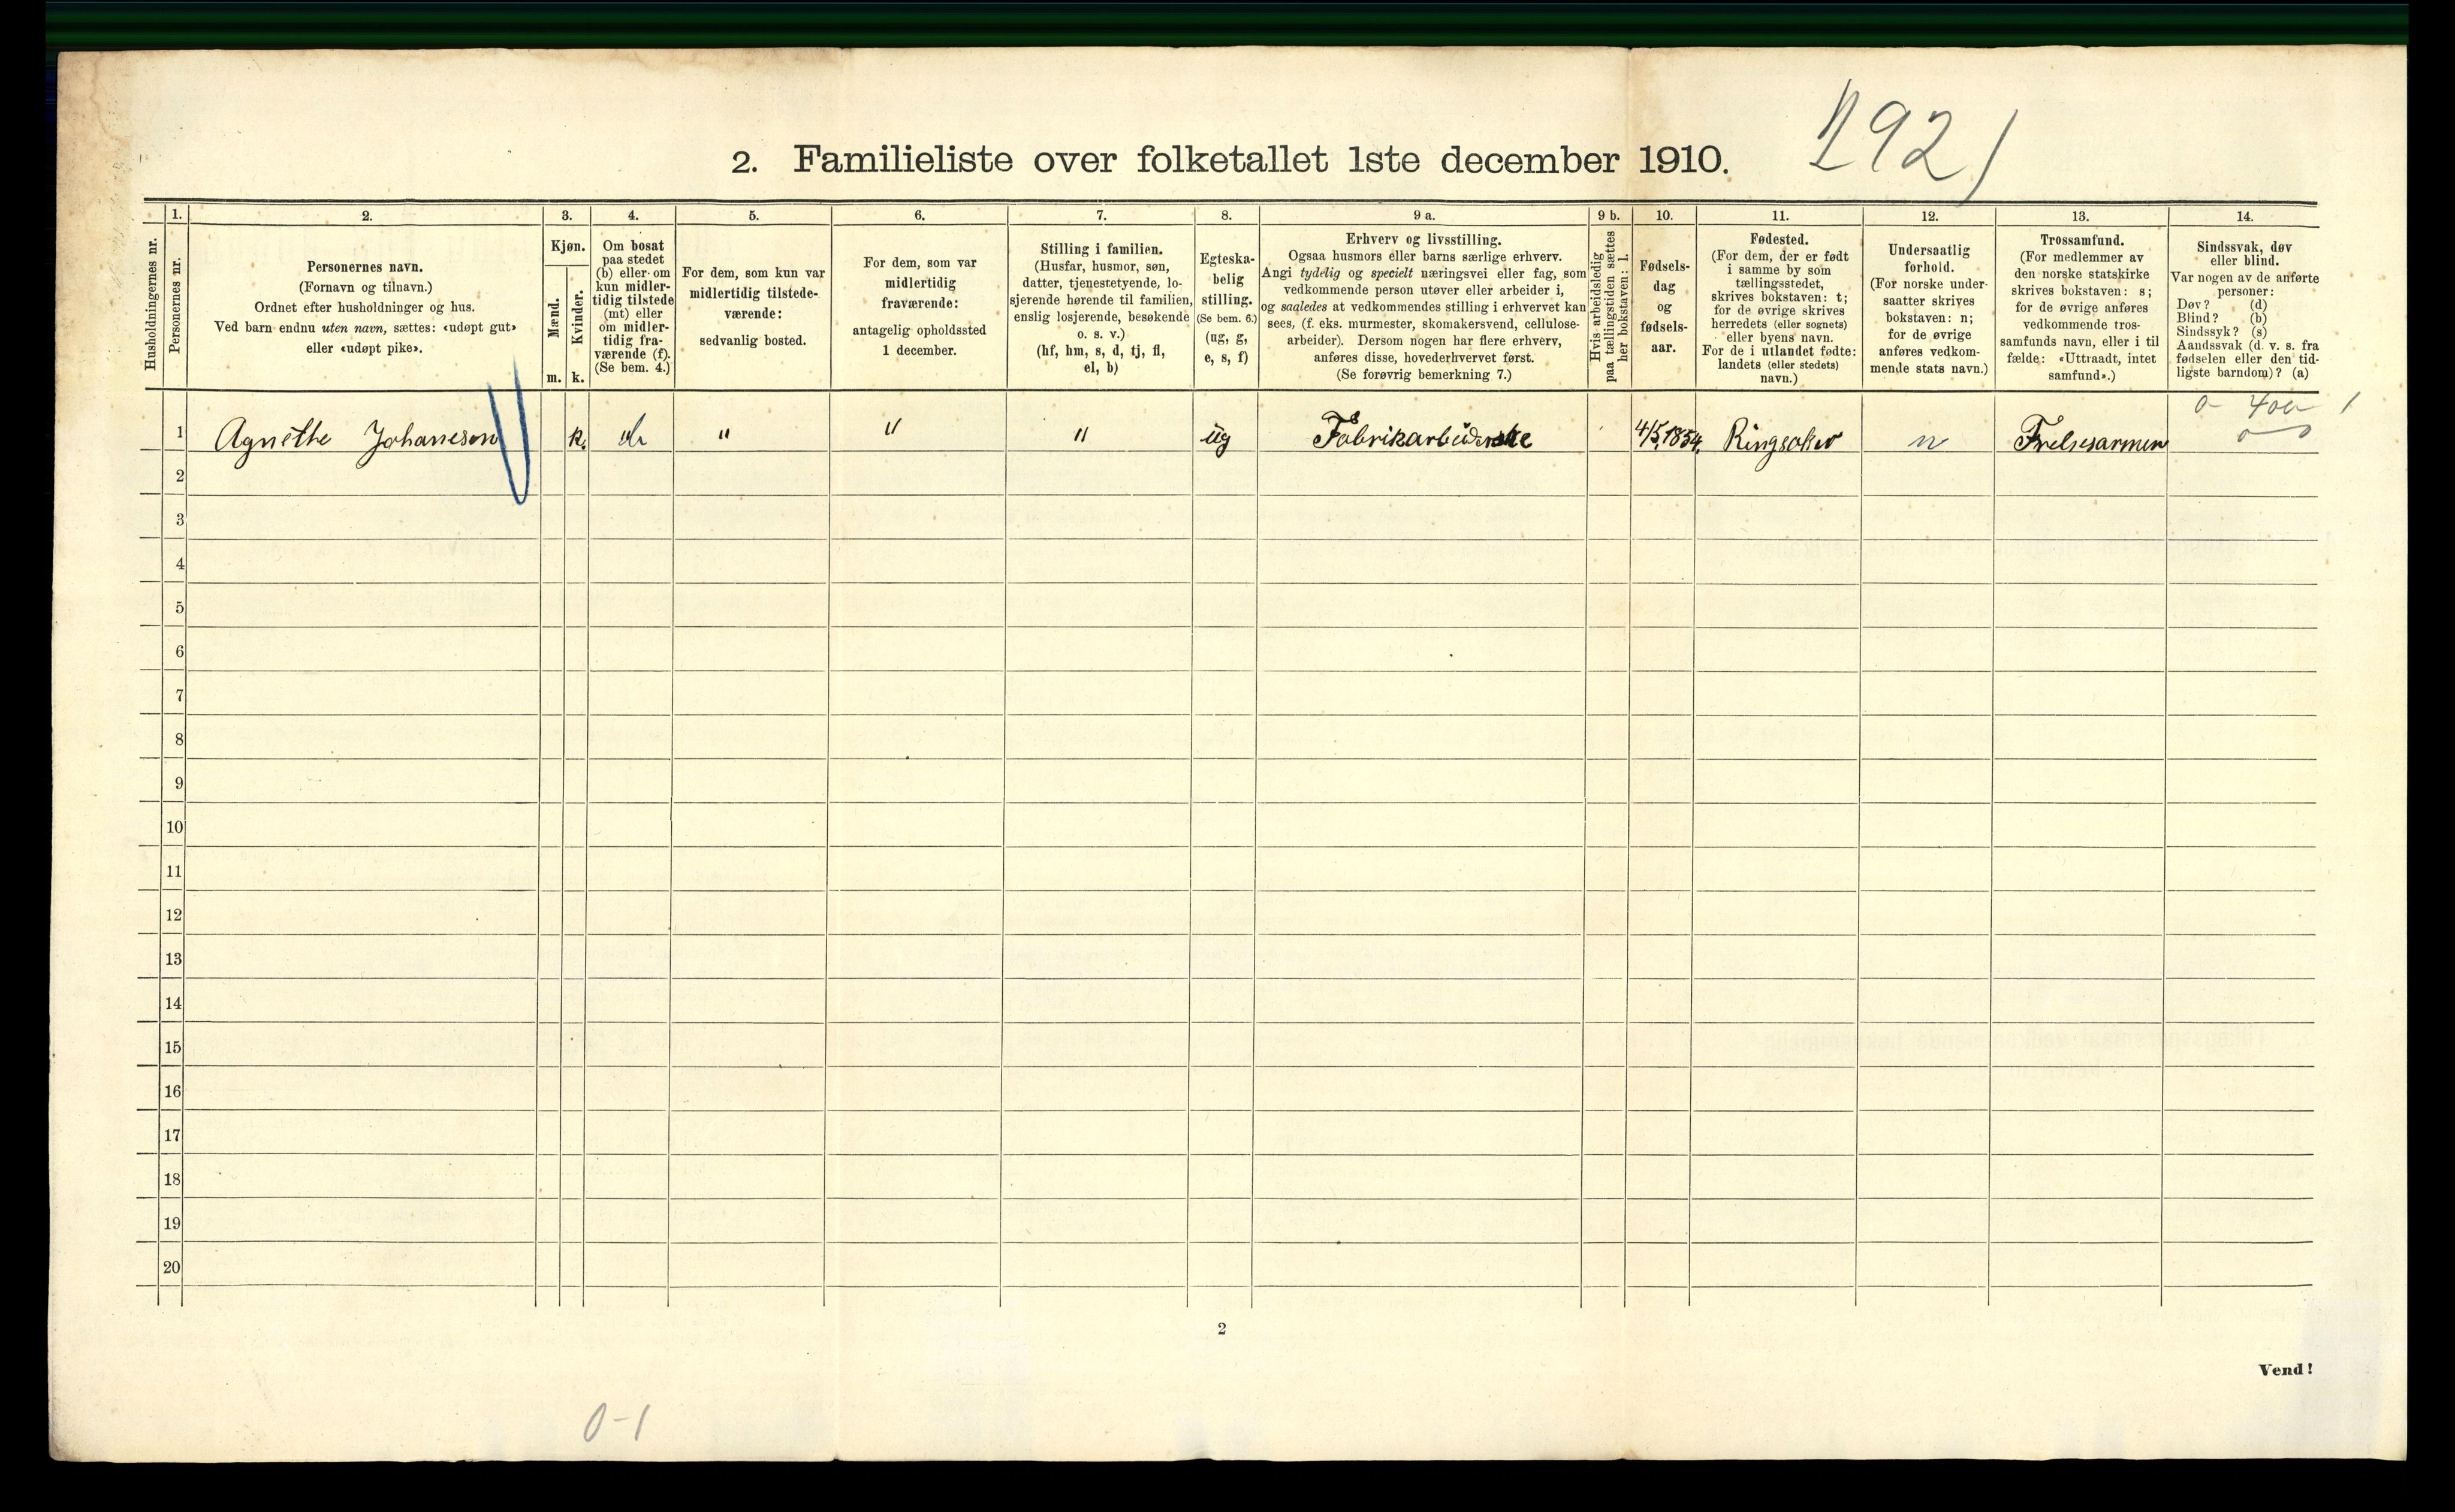 192)
2. Familieliste over folketallet 1ste december 1910.
1. 2. 3. 4. 5. 6. 7. 8. 9 a. 9 b. 10. 11. 12. 13. 14.
Husholdningernes nr.
Personernes nr.
Personernes navn.
(Fornavn og tilnavn.)
Ordnet efter husholdninger og hus.
Ved barn endnu uten navn, sættes: «udøpt gut»
eller «udøpt pike».
Kjøn.
Mænd.
m.
Kvinder.
k.
Om bosat
paa stedet
(b) eller om
kun midler-
tidig tilstede
(mt) eller
om midler-
tidig fra-
værende (f).
(Se bem. 4.)
For dem, som kun var
midlertidig tilstede-
værende:
sedvanlig bosted.
For dem, som var
midlertidig
fraværende:
antagelig opholdssted
1 december.
Stilling i familien.
(Husfar, husmor, søn,
datter, tjenestetyende, lo-
sjerende hørende til familien,
enslig losjerende, besøkende
o. s. v.)
(hf, hm, s, d, tj, fl,
el, b)
Egteska-
belig
stilling.
(Se bem. 6.)
(ug, g,
e, s, f)
Erhverv og livsstilling.
Ogsaa husmors eller barns særlige erhverv.
Angi tydelig og specielt næringsvei eller fag, som
vedkommende person utøver eller arbeider i,
og saaledes at vedkommendes stilling i erhvervet kan
sees, (f. eks. murmester, skomakersvend, cellulose-
arbeider). Dersom nogen har flere erhverv,
anføres disse, hovederhvervet først.
(Se forøvrig bemerkning 7.)
Hvis arbeidsledig
paa tællingstiden sættes
her bokstaven: l.
Fødsels-
dag
og
fødsels-
aar.
Fødested.
(For dem, der er født
i samme by som
tællingsstedet,
skrives bokstaven: t;
for de øvrige skrives
herredets (eller sognets)
eller byens navn.
For de i utlandet fødte:
landets (eller stedets)
navn.)
Undersaatlig
forhold.
(For norske under-
saatter skrives
bokstaven: n;
for de øvrige
anføres vedkom-
mende stats navn.)
Trossamfund.
(For medlemmer av
den norske statskirke
skrives bokstaven: s;
for de øvrige anføres
vedkommende tros-
samfunds navn, eller i til
fælde: «Uttraadt, intet
samfund».)
Sindssvak, døv
eller blind.
Var nogen av de anførte
personer:
Døv? (d)
Blind? (b)
Sindssyk? (s)
Aandssvak (d. v. s. fra
fødselen eller den tid-
ligste barndom)? (a)
1 Agnethe Johannesen k. " " " ug Fabrikarbeiderske 4/5 1854. Ringsaker n Frelsesarmen
2
3
4
5
6
7
8
9
10
11
12
13
14
15
16
17
18
19
20
2
Vend!
0-1